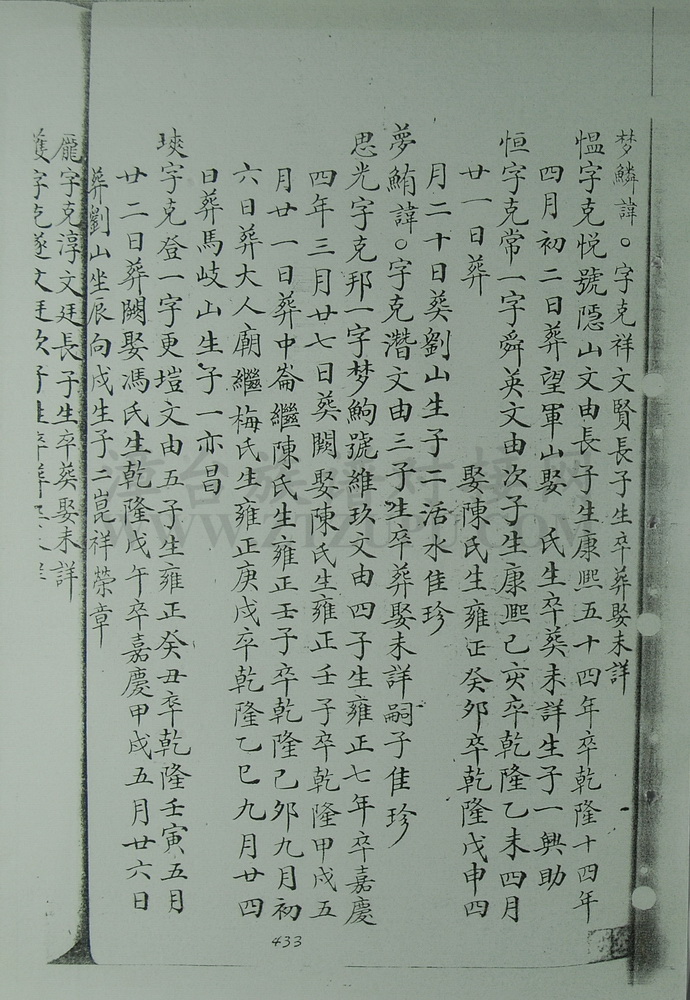 梦鱗諱。字克祥文賢長子生卒葬娶未詳
愠字克悦號隱山文由長子生康熙五十四年卒乾隆十四年
四月初二日葬望軍山娶　氏生卒葬未詳生子一興助
恒字克常一字舜英文由次子生康熙己亥卒乾隆乙未四月
廿一日葬　娶陳氏生雍正癸夘卒乾隆戊申四
月二十日葬劉山生子二活水佳珍
夢鮪諱。字克潛文由三子生卒葬娶未詳嗣子佳珍
思光字克邦一字梦鮈號維玖文由四子生雍正七年卒嘉慶
四年三月廿七日葬闕娶陳氏生雍正壬子卒乾隆甲戌五
月廿一日葬中崙繼陳氏生雍正壬子卒乾隆己夘九月初
六日葬大人廟繼梅氏生雍正庚戌卒乾隆乙巳九月廿四
日葬馬岐山生子一亦昌
瑛字克登一字更塏文由五子生雍正癸丑卒乾隆壬寅五月
廿二日葬闕娶馮氏生乾隆戊午卒嘉慶甲戌五月廿六日
葬劉山坐辰向戌生子二崑祥榮章
龐字克淳文廷長子生卒葬娶未詳
字克遂文廷次子生卒葬
433
WWW.ZTZUPU.COM